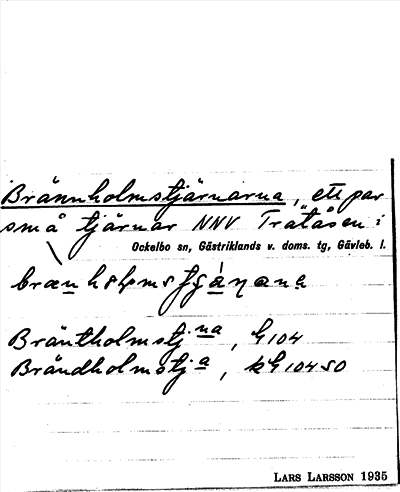 Brännholmstjärnarna, ett par
små tjärnar NNV Tratåsen i
Ockelbo sn, Gästriklands v. doms. tg, Gävleb. l.
Bräntholmstj.na, G104
Brändholmstj.a, kG10450
LARS LARSSON 1935